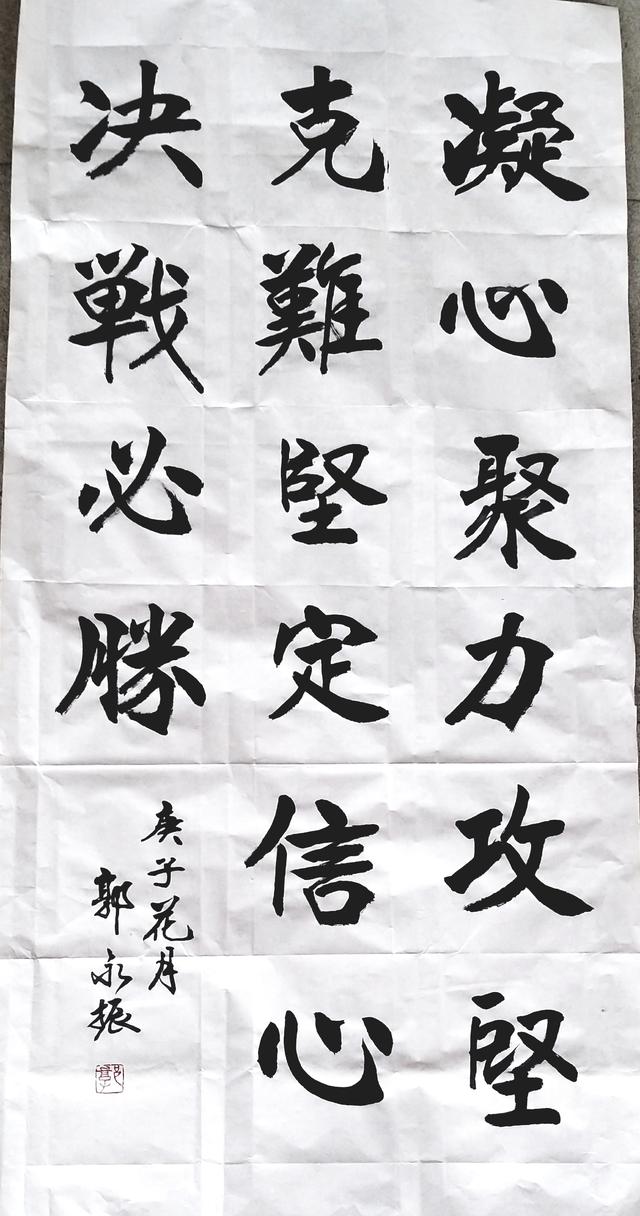 凝心聚力攻堅
克難堅定信心
决戦必勝
庚子花月
郭永振
郭